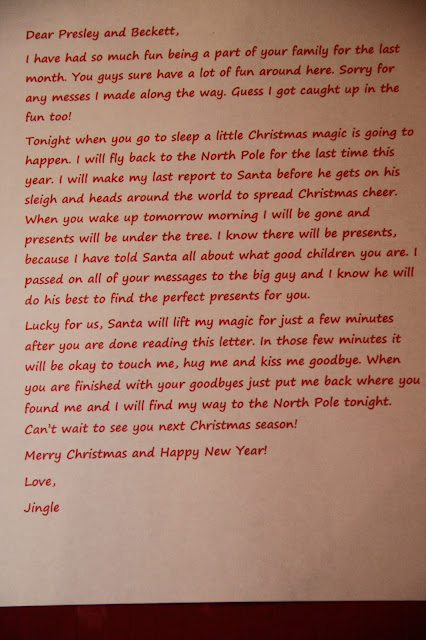 Dear Presley and Beckett,
I have had so much fun being a part of your family for the last
month. You guys sure have a lot of fun around here. Sorry for
any messes I made along the way. Guess I got caught up in the
fun too!
Tonight when you go to sleep a little Christmas magic is going to
happen. I will fly back to the North Pole for the last time this
year. I will make my last report to Santa before he gets on his
sleigh and heads around the world to spread Christmas cheer.
When you wake up tomorrow morning I will be gone and
presents will be under the tree. I know there will be presents,
because I have told Santa all about what good children you are. I
passed on all of your messages to the big guy and I know he will
do his best to find the perfect presents for you.
Lucky for us, Santa will lift my magic for just a few minutes
after you are done reading this letter. In those few minutes it
will be okay to touch me, hug me and kiss me goodbye. When
you are finished with your goodbyes just put me back where you
found me and I will find my way to the North Pole tonight.
Can't wait to see you next Christmas season!
Merry Christmas and Happy New Year!
Love,
Jingle